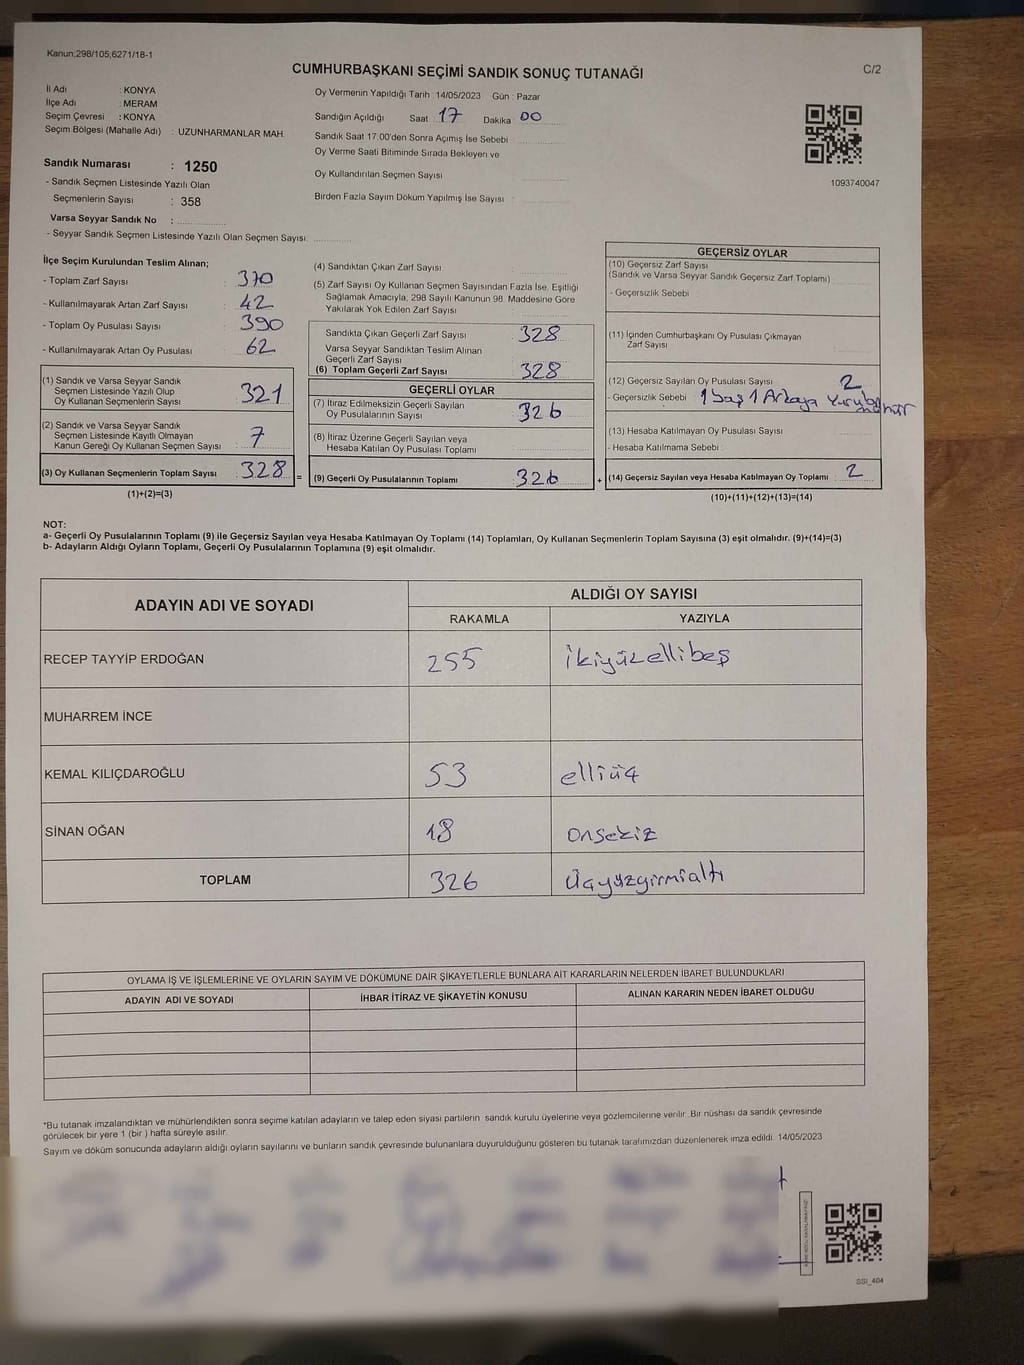 Kanun;298/105;6271/18-1
CUMHURBAŞKANI SEÇİMİ SANDIK SONUÇ TUTANAĞI
C/2
İl Adı : KONYA
İlçe Adı : MERAM
Seçim Çevresi : KONYA
Seçim Bölgesi (Mahalle Adı) : UZUNHARMANLAR MAH.
Oy Vermenin Yapıldığı Tarih : 14/05/2023 Gün : Pazar
Sandığın Açıldığı Saat 17 Dakika : 00
Sandık Saat 17:00'den Sonra Açımış İse Sebebi
Oy Verme Saati Bitiminde Sırada Bekleyen ve
Oy Kullandırılan Seçmen Sayısı
Birden Fazla Sayım Döküm Yapılmış İse Sayısı :
1093740047
Sandık Numarası : 1250
- Sandık Seçmen Listesinde Yazılı Olan
Seçmenlerin Sayısı : 358
Varsa Seyyar Sandık No :
- Seyyar Sandık Seçmen Listesinde Yazılı Olan Seçmen Sayısı:
İlçe Seçim Kurulundan Teslim Alınan;
- Toplam Zarf Sayısı : 370
- Kullanılmayarak Artan Zarf Sayısı : 42
- Toplam Oy Pusulası Sayısı : 390
- Kullanılmayarak Artan Oy Pusulası : 62
(1) Sandık ve Varsa Seyyar Sandık
Seçmen Listesinde Yazılı Olup
Oy Kullanan Seçmenlerin Sayısı : 321
(2) Sandık ve Varsa Seyyar Sandık
Seçmen Listesinde Kayıtlı Olmayan
Kanun Gereği Oy Kullanan Seçmen Sayısı : 7
(3) Oy Kullanan Seçmenlerin Toplam Sayısı : 328
(1)+(2)=(3)
=
(4) Sandıktan Çıkan Zarf Sayısı
(5) Zarf Sayısı Oy Kullanan Seçmen Sayısından Fazla İse, Eşitliği
Sağlamak Amacıyla, 298 Sayılı Kanunun 98. Maddesine Göre
Yakılarak Yok Edilen Zarf Sayısı :
Sandıkta Çıkan Geçerli Zarf Sayısı 328
Varsa Seyyar Sandıktan Teslim Alınan
Geçerli Zarf Sayısı
(6) Toplam Geçerli Zarf Sayısı 328
GEÇERLİ OYLAR
(7) İtiraz Edilmeksizin Geçerli Sayılan
Oy Pusulalarının Sayısı 326
(8) İtiraz Üzerine Geçerli Sayılan veya
Hesaba Katılan Oy Pusulası Toplamı
(9) Geçerli Oy Pusulalarının Toplamı 326
+
GEÇERSİZ OYLAR
(10) Geçersiz Zarf Sayısı
(Sandık ve Varsa Seyyar Sandık Geçersiz Zarf Toplamı)
- Geçersizlik Sebebi
(11) İçinden Cumhurbaşkanı Oy Pusulası Çıkmayan
Zarf Sayısı
(12) Geçersiz Sayılan Oy Pusulası Sayısı 2
- Geçersizlik Sebebi 1 Boş 1 Arkaya
(13) Hesaba Katılmayan Oy Pusulası Sayısı
- Hesaba Katılmama Sebebi :
(14) Geçersiz Sayılan veya Hesaba Katılmayan Oy Toplamı : 2
(10)+(11)+(12)+(13)=(14)
NOT:
a- Geçerli Oy Pusulalarının Toplamı (9) ile Geçersiz Sayılan veya Hesaba Katılmayan Oy Toplamı (14) Toplamları, Oy Kullanan Seçmenlerin Toplam Sayısına (3) eşit olmalıdır. (9)+(14)=(3)
b- Adayların Aldığı Oyların Toplamı, Geçerli Oy Pusulalarının Toplamına (9) eşit olmalıdır.
ADAYIN ADI VE SOYADI
ALDIĞI OY SAYISI
RAKAMLA YAZIYLA
RECEP TAYYİP ERDOĞAN 255 ikiyüzellibeş
MUHARREM İNCE
KEMAL KILIÇDAROĞLU 53 elliüç
SİNAN OĞAN 18 onsekiz
TOPLAM 326 üçyüzyirmialtı
OYLAMA İŞ VE İŞLEMLERİNE VE OYLARIN SAYIM VE DÖKÜMÜNE DAİR ŞİKAYETLERLE BUNLARA AİT KARARLARIN NELERDEN İBARET BULUNDUKLARI
ADAYIN ADI VE SOYADI İHBAR İTİRAZ VE ŞİKAYETİN KONUSU ALINAN KARARIN NEDEN İBARET OLDUĞU
*Bu tutanak imzalandıktan ve mühürlendikten sonra seçime katılan adayların ve talep eden siyasi partilerin sandık kurulu üyelerine veya gözlemcilerine verilir. Bir nüshası da sandık çevresinde
görülecek bir yere 1 (bir ) hafta süreyle asılır.
Sayım ve döküm sonucunda adayların aldığı oyların sayılarını ve bunların sandık çevresinde bulunanlara duyurulduğunu gösteren bu tutanak tarafımızdan düzenlenerek imza edildi. 14/05/2023
SSI_404